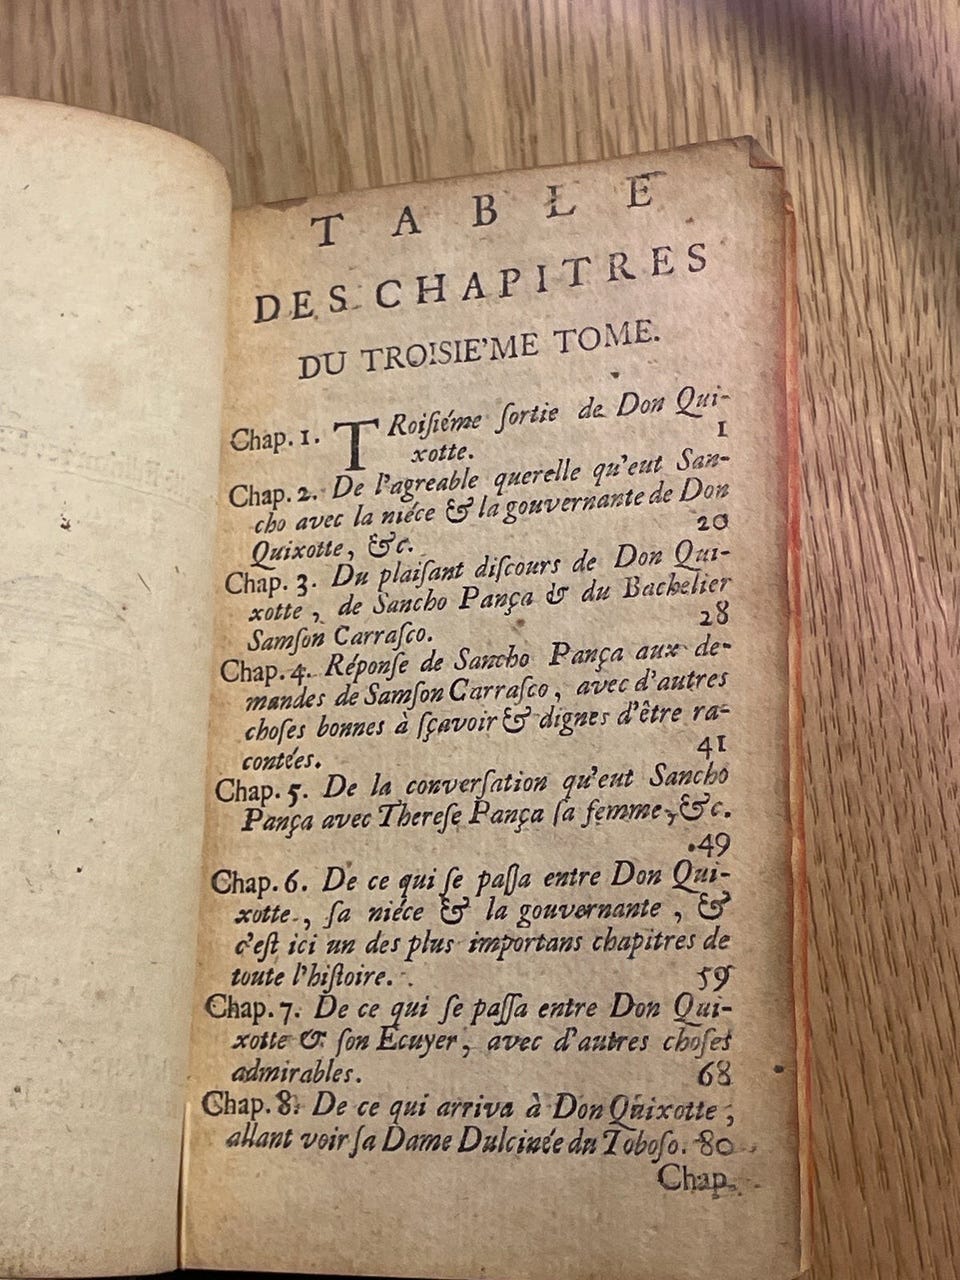 TABLE
DES CHAPITRES
DU TROISIE'ME TOME.
Chap. 1. TRoiſiéme ſortie de Don Qui-
xotte. 1
Chap. 2. De l'agreable querelle qu'eut San-
cho avec la niéce & la gouvernante de Don
Quixotte, &c. 20
Chap. 3. Du plaiſant diſcours de Don Qui-
xotte, de Sancho Pança & du Bachelier
Samſon Carraſco. 28
Chap. 4. Réponſe de Sancho Pança aux de-
mandes de Samſon Carraſco, avec d'autres
choſes bonnes à ſçavoir & dignes d'être ra-
contées. 41
Chap. 5. De la converſation qu'eut Sancho
Pança avec Thereſe Pança ſa femme, &c.
49
Chap. 6. De ce qui ſe paſſa entre Don Qui-
xotte, ſa niéce & la gouvernante, &
c'eſt ici un des plus importans chapitres de
toute l'hiſtoire. 59
Chap. 7. De ce qui ſe paſſa entre Don Qui-
xotte & ſon Ecuyer, avec d'autres choſes
admirables. 68
Chap. 8. De ce qui arriva à Don Quixotte,
allant voir ſa Dame Dulcinée du Toboſo. 80
Chap.